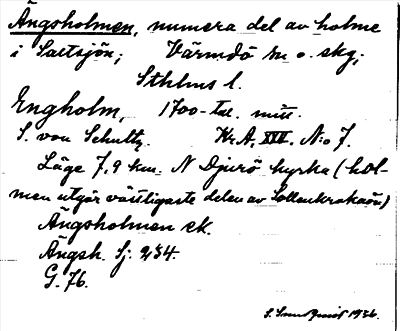 Ängsholmen, numera del av holme
i Saltsjön; Värmdö sn o. skg;
Sthlms l.
Engholm, 1700-tal. mitt.
S. von Schultz. Kr.A. XVII. N:o 7.
Läge 7,9 km. N Djurö kyrka (hol-
men utgör västligaste delen av Sollenkrokaön)
Ängsholmen ek.
Ängsh. Sj. 234.
G. 76.
1936.